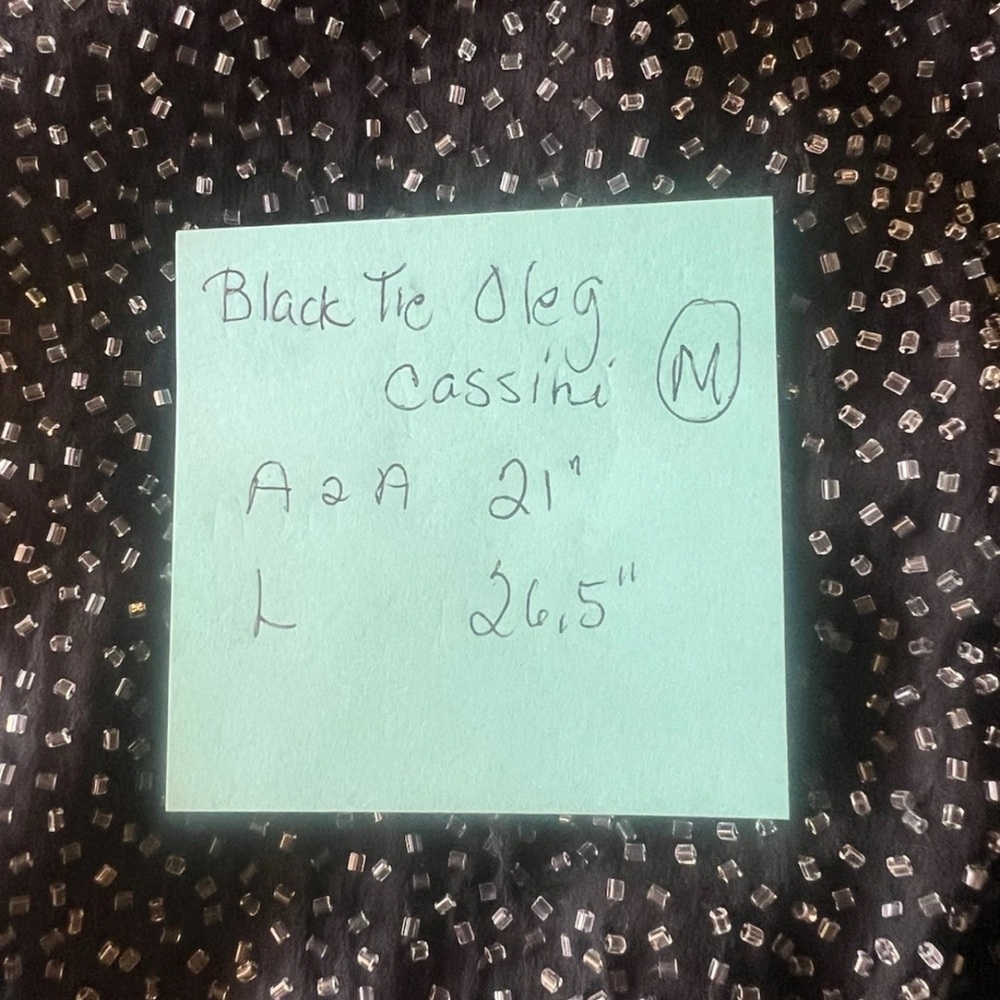 Black Tie Oleg
Cassini M
A 2 A 21"
L 26.5"